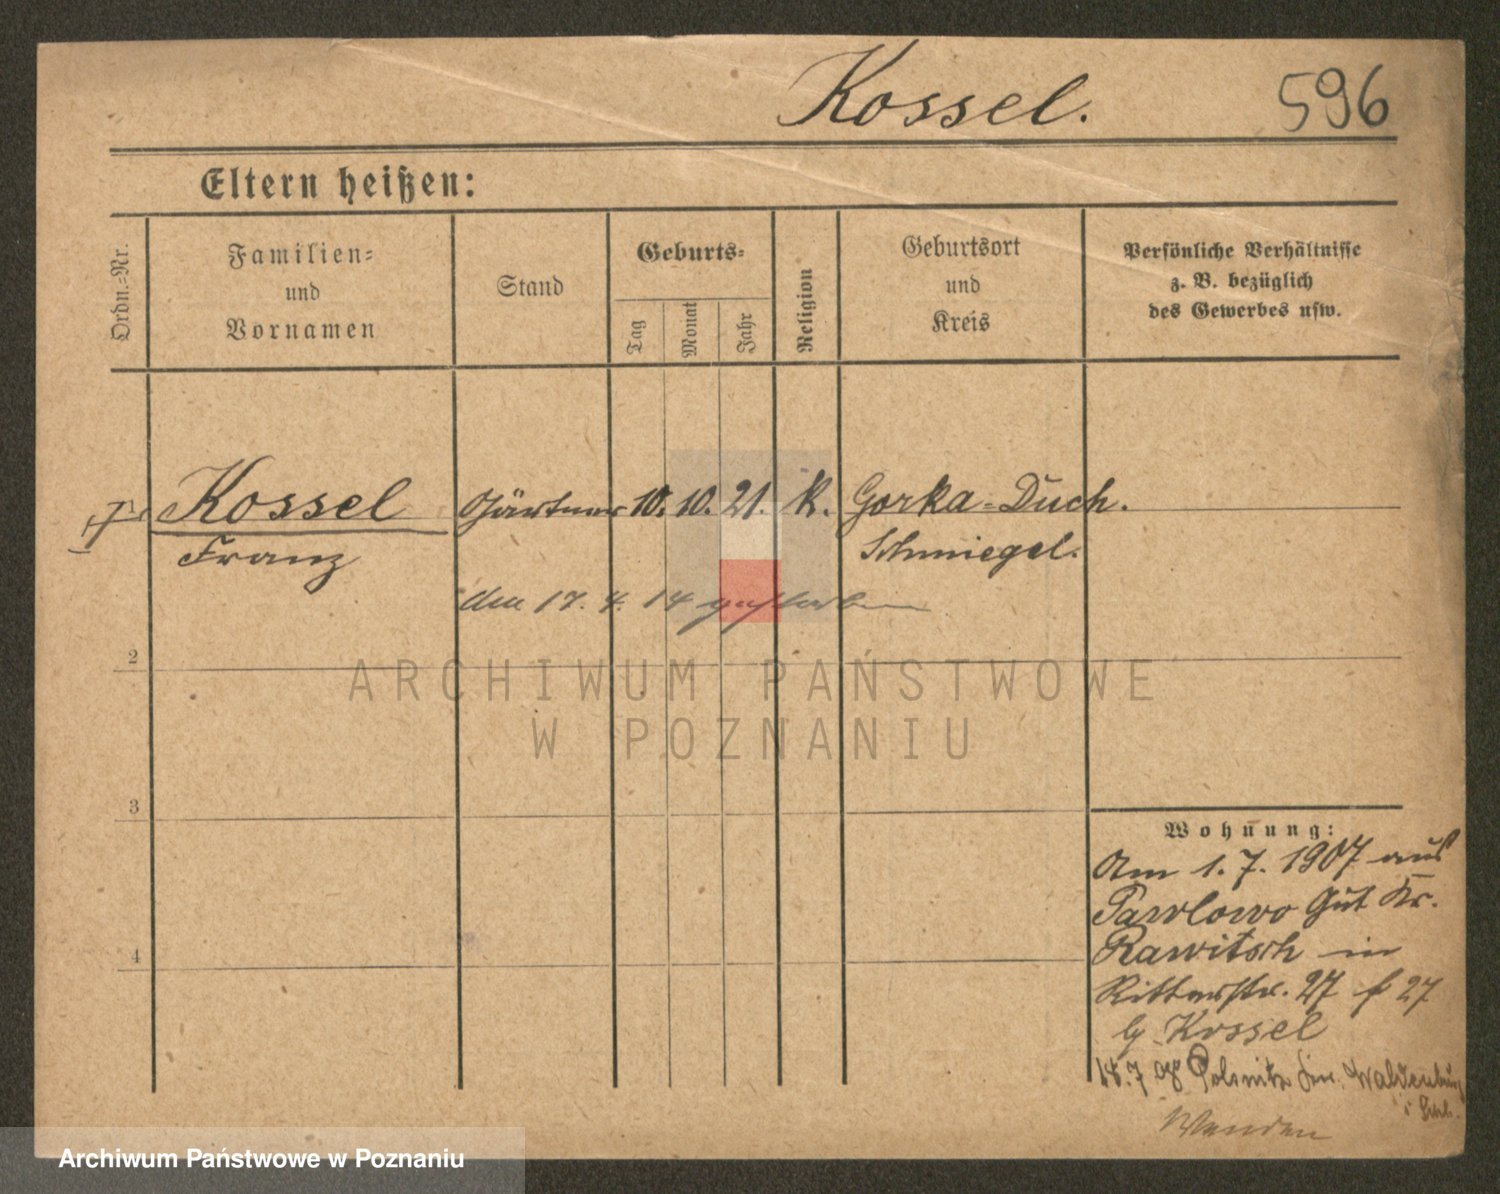 Kossel. 596
Eltern heißen:
Ordn.-Nr.
Familien-
und
Vornamen
Stand
Geburts-
Tag
Monat
Jahr
Religion
Geburtsort
und
Kreis
Persönliche Verhältnisse
z. B. bezüglich
des Gewerbes usw.
Kossel Gärtner 10. 10. 21. k. Gorka-Duch.
Franz Schmiegel.
den 17. 4. 14 gestorben
2
ARCHIWUM PAŃSTWOWE
W POZNANIU
3
Wohnung:
Am 1. 7. 1907 aus
Pawlowo Gut Kr.
Rawitsch in
Ritterstr. 27 27
Kossel
Polsnitz Waldenburg
Wenden
4
Archiwum Państwowe w Poznaniu